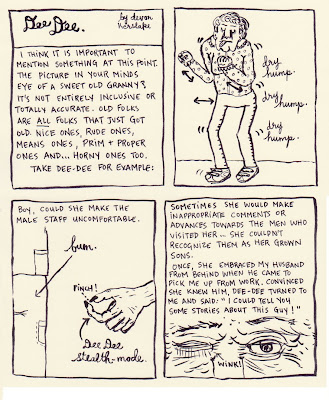 Dee Dee.
by devon
I THINK IT IS IMPORTANT TO
MENTION SOMETHING AT THIS POINT.
THE PICTURE IN YOUR MINDS
EYE OF A SWEET OLD GRANNY?
IT'S NOT ENTIRELY INCLUSIVE OR
TOTALLY ACCURATE. OLD FOLKS
ARE ALL FOLKS THAT JUST GOT
OLD. NICE ONES, RUDE ONES,
MEANS ONES, PRIM + PROPER
ONES AND... HORNY ONES TOO.
TAKE DEE-DEE FOR EXAMPLE:
dry
hump.
dry
hump.
dry
hump.
BOY, COULD SHE MAKE THE
MALE STAFF UNCOMFORTABLE.
bum.
PINCH!
Dee Dee
stealth-mode.
SOMETIMES SHE WOULD MAKE
INAPPROPRIATE COMMENTS OR
ADVANCES TOWARDS THE MEN WHO
VISITED HER... SHE COULDN'T
RECOGNIZE THEM AS HER GROWN
SONS.
ONCE, SHE EMBRACED MY HUSBAND
FROM BEHIND WHEN HE CAME TO
PICK ME UP FROM WORK. CONVINCED
SHE KNEW HIM, DEE-DEE TURNED TO
ME AND SAID: "I COULD TELL YOU
SOME STORIES ABOUT THIS GUY!"
WINK!